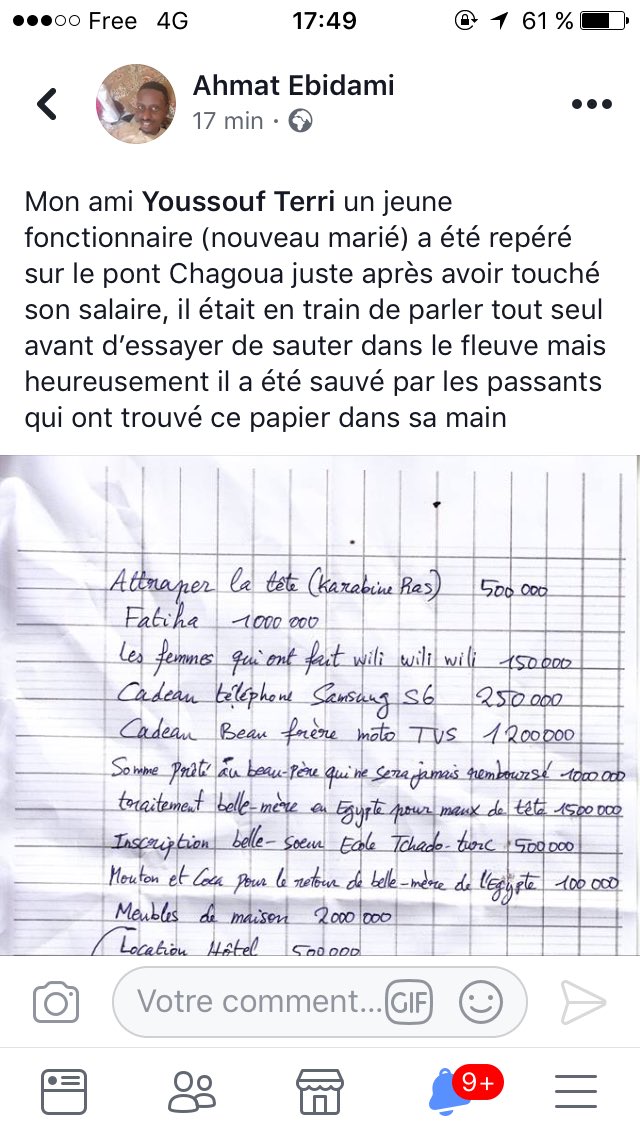 Free 4G 17:49 61 %
Ahmat Ebidami
17 min ·
Mon ami Youssouf Terri un jeune
fonctionnaire (nouveau marié) a été repéré
sur le pont Chagoua juste après avoir touché
son salaire, il était en train de parler tout seul
avant d’essayer de sauter dans le fleuve mais
heureusement il a été sauvé par les passants
qui ont trouvé ce papier dans sa main
Attraper la tête (Karabine Ras) 500 000
Fatiha 1000 000
Les femmes qui ont fait wili wili wili 150 000
Cadeau téléphone Samsung S6 250 000
Cadeau Beau frère moto TVS 1 200 000
Somme prêté au beau-père qui ne sera jamais remboursé 1000 000
traitement belle-mère en Egypte pour maux de tête 1500 000
Inscription belle-soeur Ecole Tchado-turc 500 000
Mouton et Coca pour le retour de belle-mère de l'Egypte 100 000
Meubles de maison 2000 000
Location Hôtel 500 000
Votre comment... GIF
9+